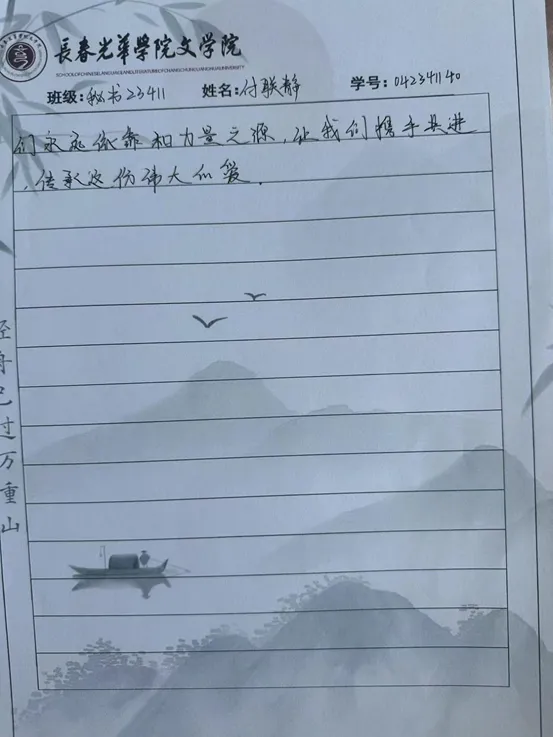 長春光華學院文学院
SCHOOL OF CHINESE LANGUAGE AND LITERATURE OF CHANGCHUN GUANGHUA UNIVERSITY
班级:秘书23411 姓名:付联静 学号:042341140
们永远依靠和力量之源,让我们携手共进
,传承这份伟大的爱.
轻舟已过万重山